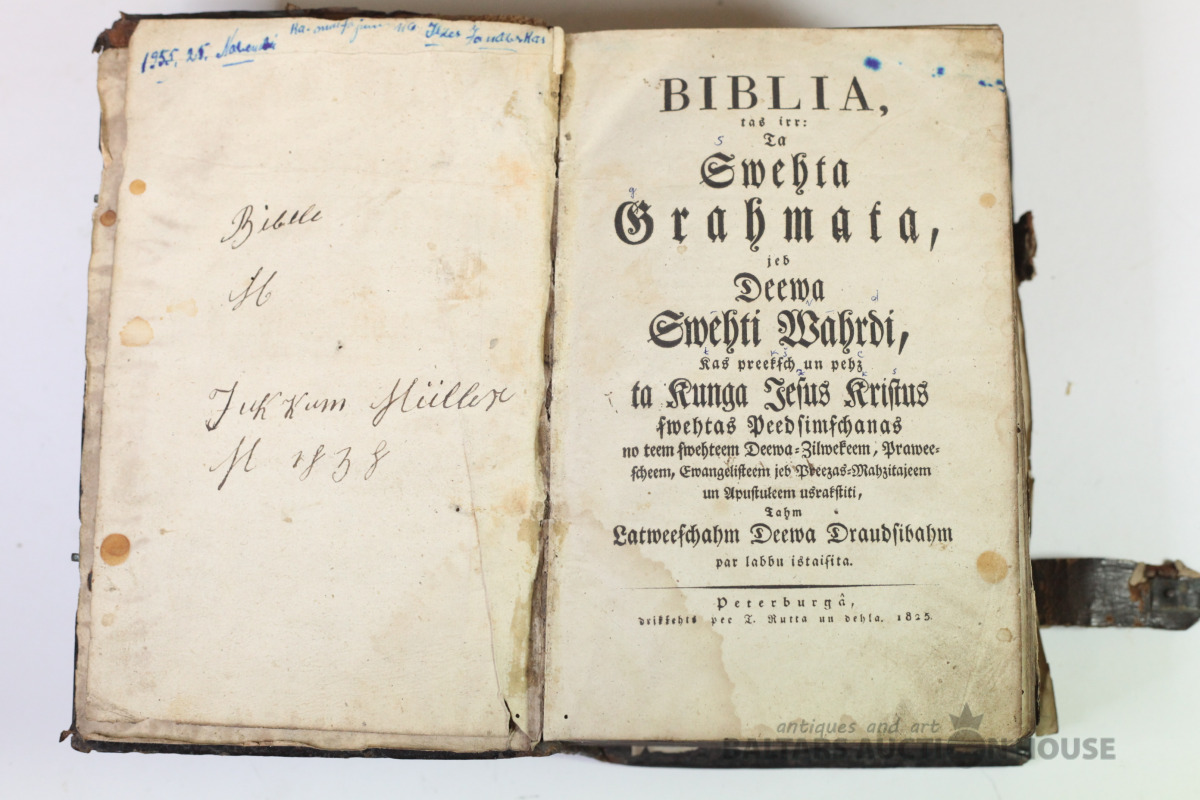 1955, 25.
Bible
M
Jukkum Müller
M 1838
BIBLIA,
tas irr:
Ta
Swehta
Grahmata,
jeb
Deewa
Swehti Wahrdi,
Kas preekſch un pehz
ta Kunga Jeſus Kriſtus
ſwehtas Peedſimſchanas
no teem ſwehteem Deewa-Zilwekeem, Prawee-
ſcheem, Ewangeliſteem jeb Preezas-Mahzitajeem
un Apuſtuleem usrakſtiti,
Tahm
Latweeſchahm Deewa Draudſibahm
par labbu istaiſita.
Peterburgâ,
drikkehts pee T. Rutta un dehla. 1825.
antiques and art
BALTARS AUCTION HOUSE